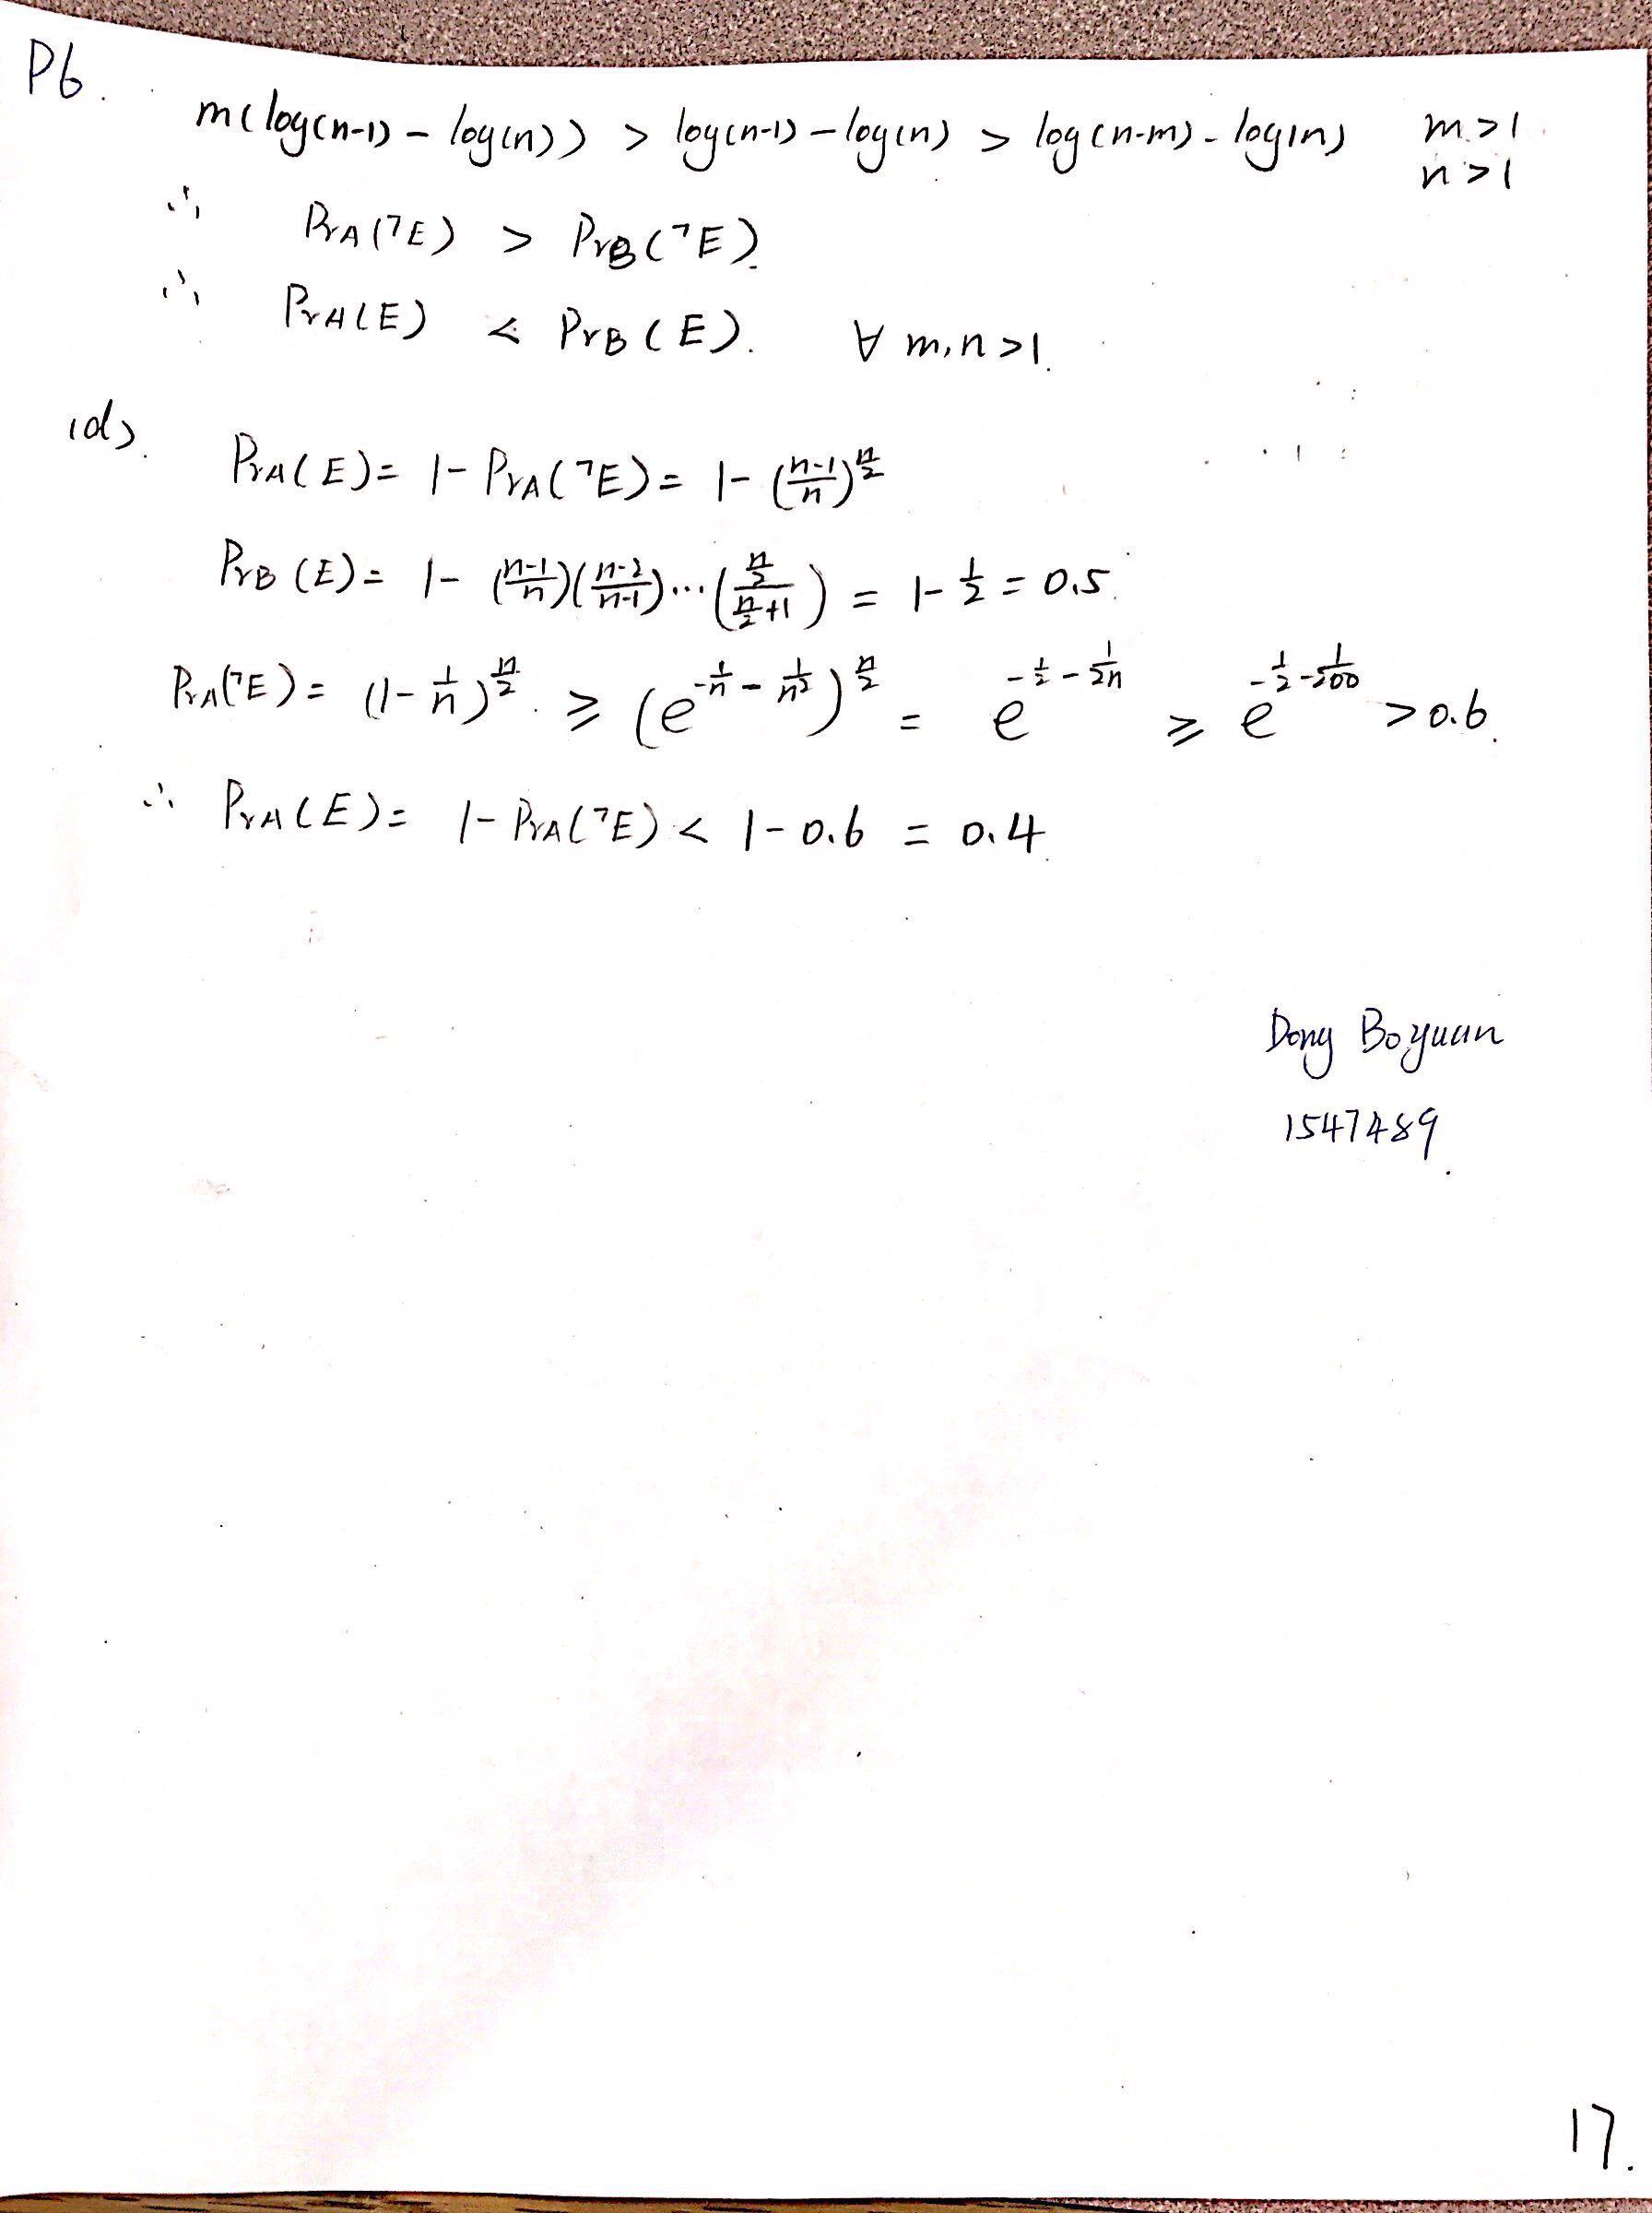 P6.
m(log(n-1) - log(n)) > log(n-1) - log(n) > log(n-m) - log(n) m>1
n>1
∴ PrA(¬E) > PrB(¬E).
∴ PrA(E) < PrB(E). ∀ m,n>1.
(d).
PrA(E) = 1 - PrA(¬E) = 1 - (\frac{n-1}{n})^{\frac{n}{2}}
PrB(E) = 1 - (\frac{n-1}{n})(\frac{n-2}{n-1})...(\frac{\frac{n}{2}}{\frac{n}{2}+1}) = 1 - \frac{1}{2} = 0.5.
PrA(¬E) = (1 - \frac{1}{n})^{\frac{n}{2}} ≥ (e^{-\frac{1}{n} - \frac{1}{n^2}})^{\frac{n}{2}} = e^{-\frac{1}{2} - \frac{1}{2n}} ≥ e^{-\frac{1}{2} - \frac{1}{200}} > 0.6.
∴ PrA(E) = 1 - PrA(¬E) < 1 - 0.6 = 0.4.
Dong Boyuan
1547489.
17.